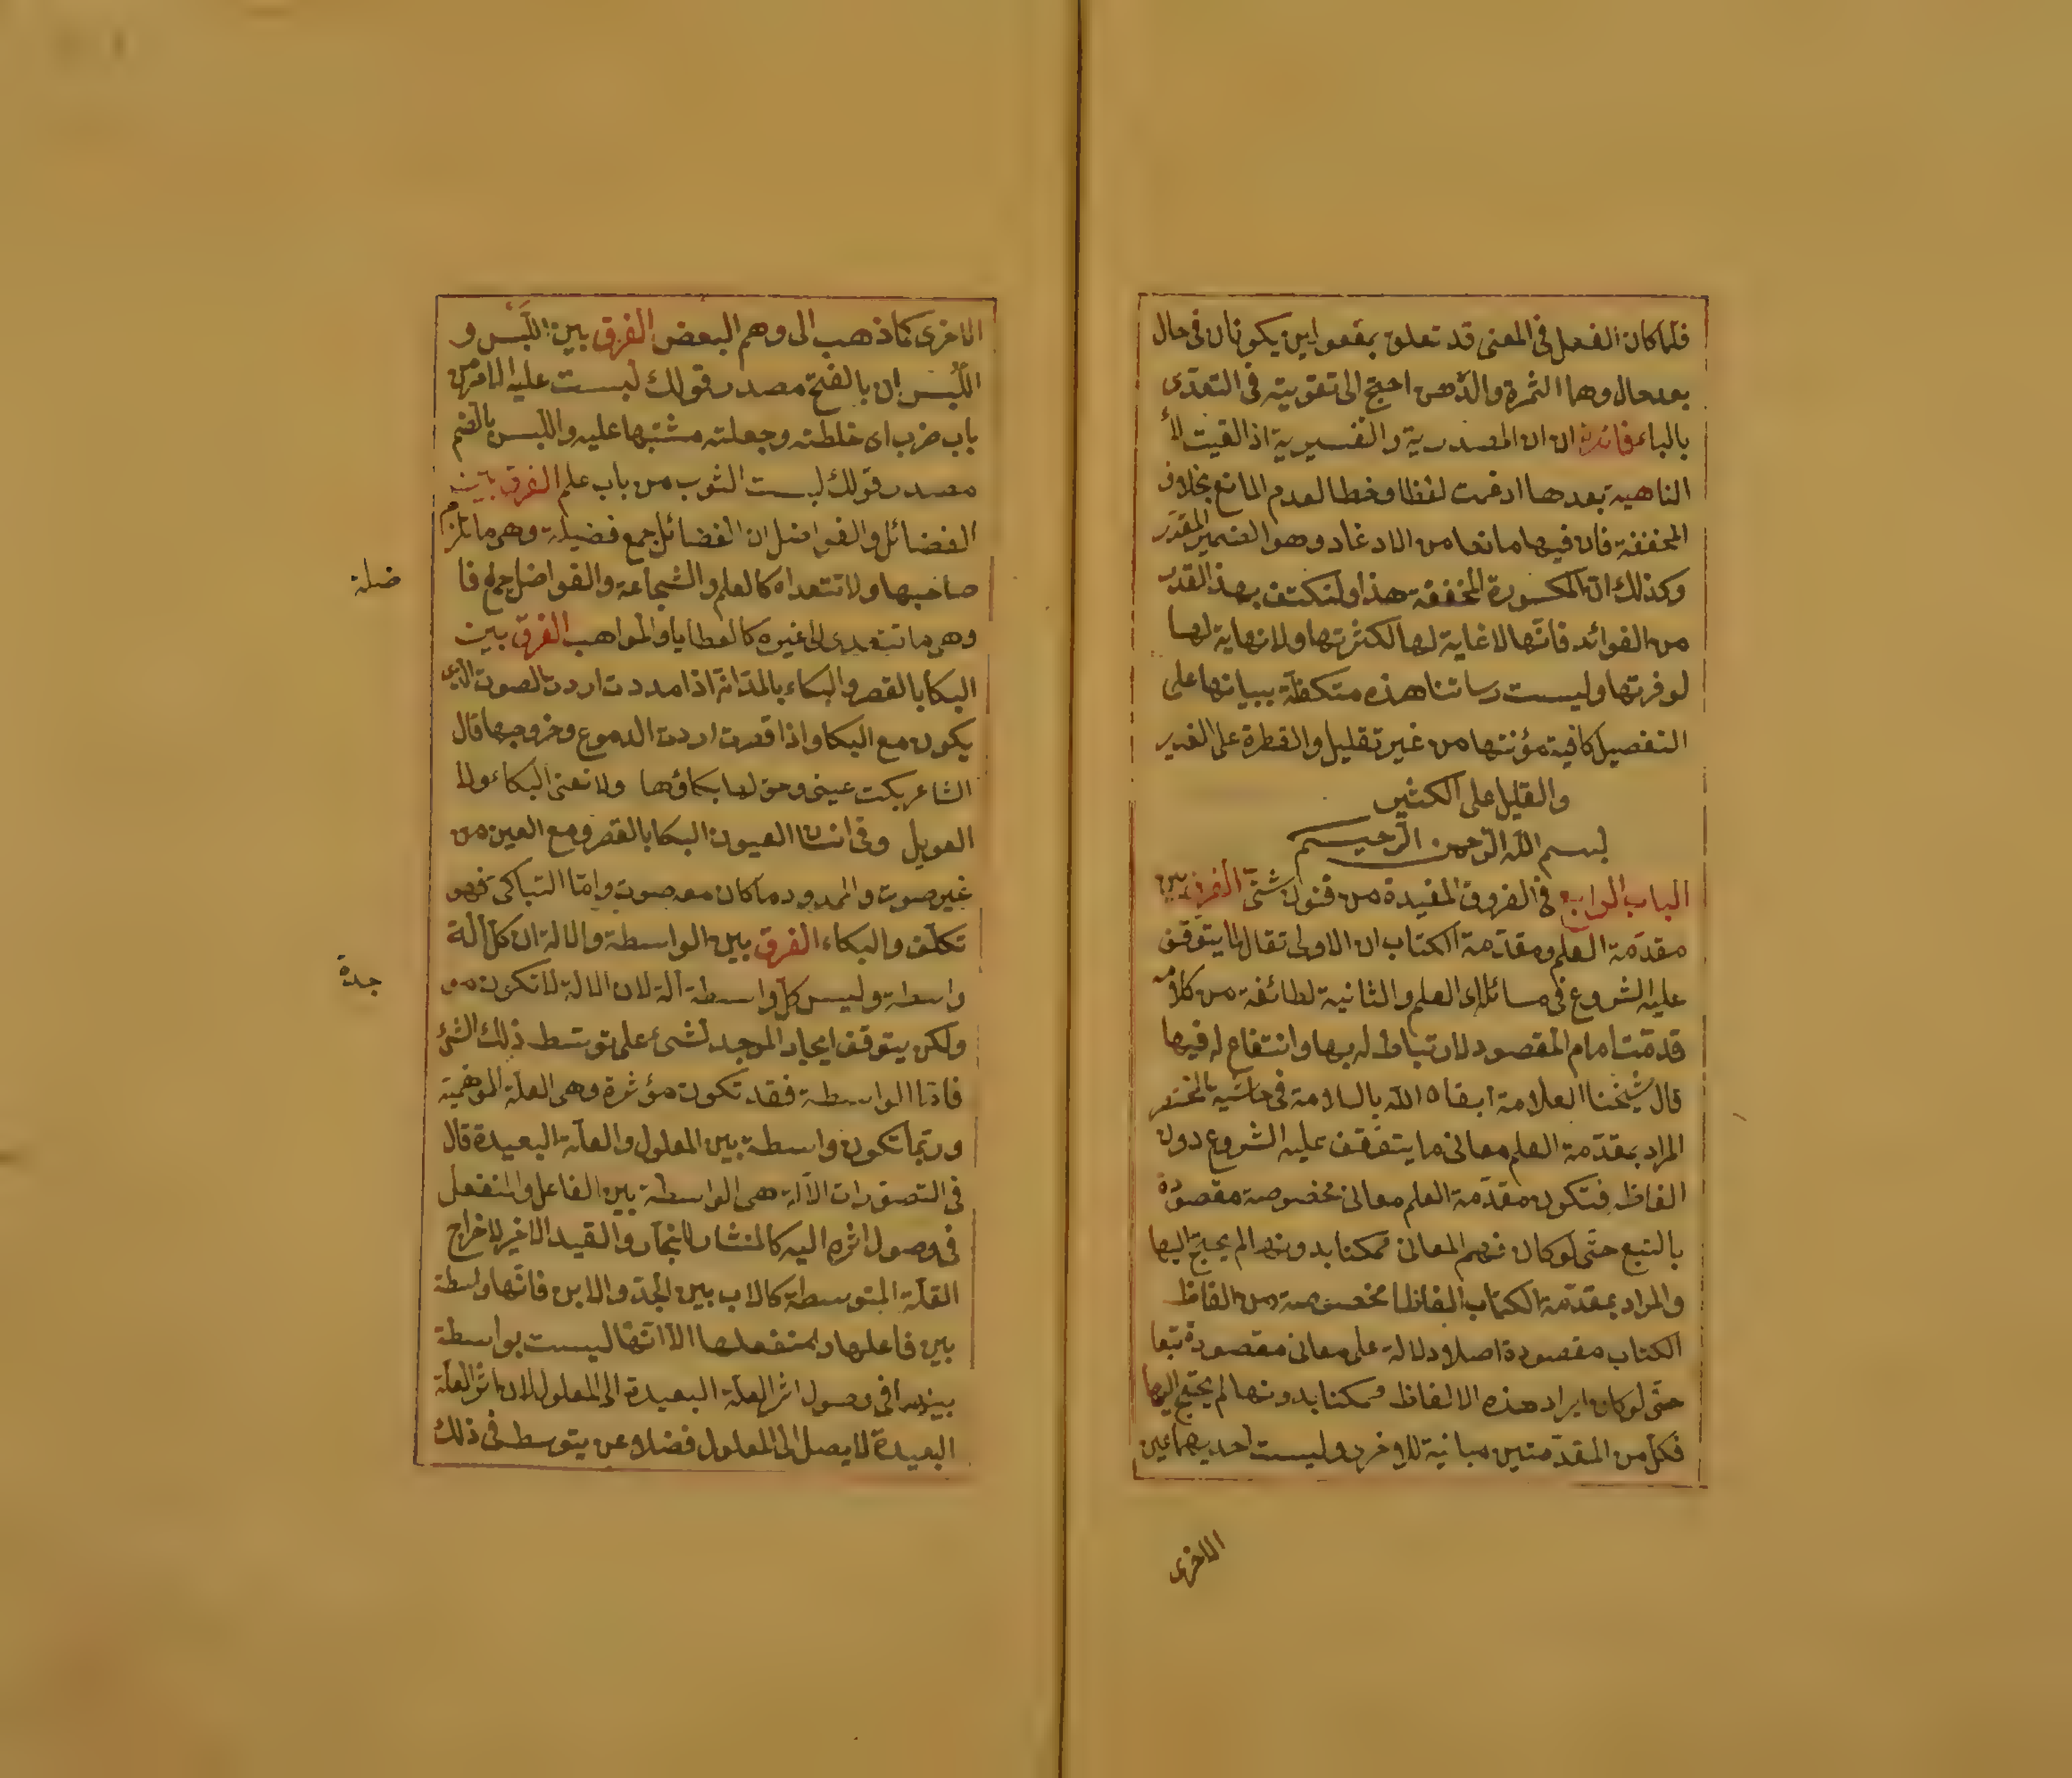 فلما كان الفعل فى المعنى قد تعلق بمفعولين يكونان فى حال
بعد حال وهما الثمرة والدهن احتج الى تقويته فى التعدى
بالباء فائدة ان ان المصدرية والتفسيرية اذا لقيت لا
الناهية بعدها ادغمت لفظا وخطا لعدم المانع بخلاف
المخففة فان فيها مانعا من الادغاد وهو الضمير المقدر
وكذلك ان المكسورة المخففة هذا ولنكتف بهذا القدر
من الفوائد فانها لا غاية لها لكثرتها ولا نهاية لها
لوفرتها وليست رسالتنا هذه متكظة ببيانها على
التفصيل كافية مؤنتها من غير تقليل والقطرة على الغدير
والقليل على الكثير
بسم الله الرحمن الرحيم
الباب الرابع فى الفروق المفيدة من فنون شتى الفرق بين
مقدمة العلم ومقدمة الكتاب ان الاولى تقال لما يتوقف
عليه الشروع فى مسائله اى العلم والثانية لطائفة من كلامه
قدمت امام المقصود لارتباط له بها وانتفاع له فيها
قال شيخنا العلامة ابقاه الله بالسلامة فى حاشية المختصر
المراد بمقدمة العلم معانى ما يتوقف عليه الشروع دون
الفاظ فتكون مقدمة العلم معانى مخصوصة مقصودة
بالتبع حتى لو كان فهم المعانى ممكنا بدونها لم يحتج اليها
والمراد بمقدمة الكتاب الفاظا مخصوصة من الفاظ
الكتاب مقصودة اصلا ودلالة على معانى مقصودة تبعا
حتى لو كان ايراد هذه الالفاظ ممكنا بدونها لم يحتج اليها
فكل من المقدمتين مباينة للاخرى وليست احديهما عين
الاخرى
الاخرى كما ذهب الى وهم البعض الفرق بين اللبس و
اللبس ان بالفتح مصدر قولك لبست عليه الامر من
باب ضرب اى خلطته وجعلته مشتبها عليه واللبس بالضم
مصدر قولك لبست الثوب من باب علم الفرق بين
الفضائل والفواضل ان الفضائل جمع فضيلة وهى ما تلزم
صاحبها ولا تتعداه كالعلم والشجاعة والفواضل جمع فا
ضلة
وهى ما تتعدى الى غيره كالعطايا والمواهب الفرق بين
البكا بالقصر والبكاء بالمد انه اذا مددت اردت الصوت الذى
يكون مع البكا واذا قصرت اردت الدموع وخروجها قال
الشاعر بكت عينى وحق لها بكاؤها ولا تغنى البكاء ولا
العويل وفى انسان العيون البكا بالقصر دمع العين من
غير صوت والممدود ما كان معه صوت واما التباكى فهو
تكلف والبكاء الفرق بين الواسطة والالة ان كل آلة
واسطة وليس كل واسطة آلة لان الالة لا تكون مو
جدة
ولكن يتوقف ايجاد الموجد لشئ على توسط ذلك الشئ
فاما الواسطة فقد تكون مؤثرة وهى العلة
وربما تكون واسطة بين المعلول والعلة البعيدة قال
فى التصورات الآلة هى الواسطة بين الفاعل والمنفعل
فى وصول اثره اليه كالمنشار للنجار والقيد الاخير لاخراج
العلة المتوسطة كالاب بين الجد والابن فانها واسطة
بين فاعلها ومنفعلها الا انها ليست بواسطة
بينهما فى وصول اثر العلة البعيدة الى المعلول لان اثر العلة
البعيدة لا يصل الى المعلول فضلا عن يتوسط فى ذلك